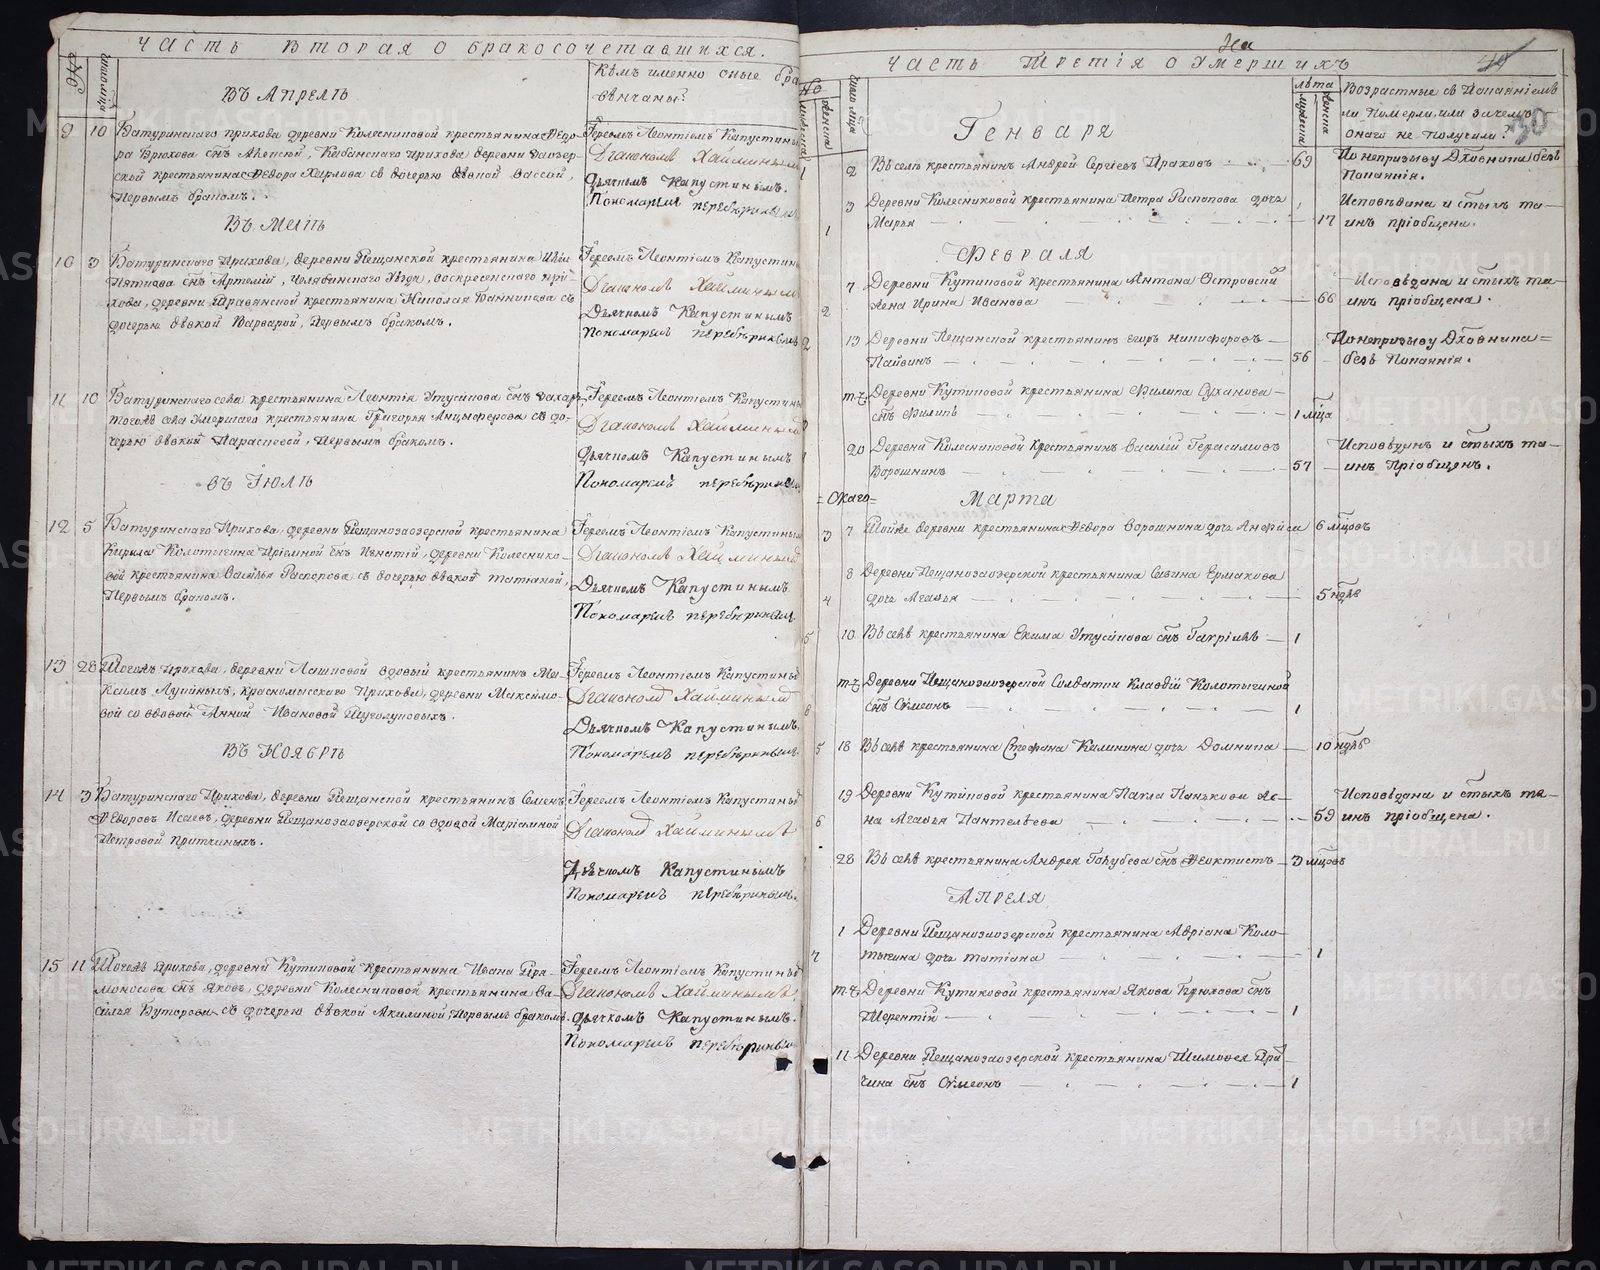 часть вторая о бракосочетавшихся.
число мѣсяца
Кѣмъ именно оные бра
вѣнчаны?
Въ Апрелѣ
9 10 Батуринскаго прихода деревни Колесниковой крестьянина Ѳедо-
ра Брюхова сынъ Алексѣй, Кабанскаго прихода деревни Заозер-
ской крестьянина Ѳедора Хар﻿лова съ дочерью дѣвкой Вассой,
Первымъ бракомъ.
Іереемъ Леонтіемъ Капустины
Діакономъ Хайминымъ
Дьячкомъ Капустинымъ.
Пономаремъ перебѣринымъ
Въ Маіѣ
10 3 Батуринскаго прихода, деревни Пещанской крестьянина
Пяткова сынъ Артемій, Челябинскаго Уѣзда, воскресенскаго при-
хода, деревни Травянской крестьянина Николая Банникова съ
дочерью дѣвкой Варварой, Первымъ бракомъ.
Іереемъ Леонтіемъ Капустинъ
Діакономъ Хайминымъ
Дьячкомъ Капустинымъ
Пономаремъ перебѣринымъ
11 10 Батуринскаго села крестьянина Леонтія Утусикова сынъ Захаръ,
тогожъ села Умершаго крестьянина Григорья Анцыферова съ до-
черью дѣвкой Параскевой, Первымъ бракомъ.
Іереемъ Леонтіемъ Капустины
Діакономъ Хайминымъ
Дьячкомъ Капустинымъ
Пономаремъ перебѣринымъ
въ Іюлѣ
12 5 Батуринскаго Прихода деревни Пещанозаозерской крестьянина
Кирила Колотыгина Пріемной сынъ Игнатій, деревни Колеснико-
вой крестьянина Василья Распопова съ дочерью дѣвкой татіаной,
Первымъ бракомъ.
Іереемъ Леонтіемъ Капустинымъ
Діакономъ Хайминымъ
Дьячкомъ Капустинымъ.
Пономаремъ перебѣринымъ.
13 28 Тогожъ прихода, деревни Лашковой вдовый крестьянинъ Ма-
ксимъ Лупиныхъ, красномысскаго Прихода, деревни Максимо-
вой со вдовой Анной Ивановой Шуголуповыхъ.
Іереемъ Леонтіемъ Капустины
Діакономъ Хайминымъ
Дьячкомъ Капустинымъ.
Пономаремъ перебѣринымъ.
Въ Ноябрѣ
14 3 Батуринскаго Прихода, деревни Пещанской крестьянинъ Семенъ
Ѳедоровъ Исаевъ, деревни Пещанозаозерской со вдовой Маріамной
Петровой Притчиныхъ.
Іереемъ Леонтіемъ Капустины
Діакономъ Хайминымъ
Дьячкомъ Капустинымъ
Пономаремъ перебѣринымъ.
15 11 Тогожъ прихода, деревни Кутиковой крестьянина Ивана Гра-
моносова сынъ Яковъ, деревни Колесниковой крестьянина Ва-
силья Буторова съ дочерью дѣвкой Акилиной, Первымъ бракомъ.
Іереемъ Леонтіемъ Капустины
Діакономъ Хайминымъ
Дьячкомъ Капустинымъ.
Пономаремъ перебѣринымъ
часть третія о умершихъ
30
число мца
женска
лѣта
мужеска
женска
Возрастные съ Покаяніемъ
ли Померли, или зачемъ
онаго не получили?
Генваря
2 Въ селѣ крестьянинъ Андрей Сергіевъ Праховъ 69
По непризыву Духовника безъ
Покаянія.
1 3 Деревни Колесниковой крестьянина Петра Распопова дочь
Марья 17
Исповѣдана и стыхъ та-
инъ пріобщена.
Февраля
2 7 Деревни Кутиковой крестьянина Антона Островскій
жена Ирина Иванова 66
Исповѣдана и стыхъ та-
инъ пріобщена.
2 13 Деревни Пещанской крестьянинъ Егоръ Никифоровъ
Пайвинъ 56
По непризыву Духовника
безъ Покаянія.
тогожъ Деревни Кутиковой крестьянина Филипа Суханова
сынъ Филипъ 1 мца
20 Деревни Колесниковой крестьянинъ Василій Герасимовъ
Ворошнинъ 57
Исповѣданъ и стыхъ та-
инъ Пріобщенъ.
Марта
3 7 Тойже деревни крестьянина Ѳедора Ворошнина дочь Анфиса 6 мцовъ
4 8 Деревни Пещанозаозерской крестьянина Савина Ермакова
дочь Агафья 5 ндль
5 10 Въ селѣ крестьянина Екима Утусикова сынъ Гавріилъ 1
6 тогожъ Деревни Пещанозаозерской Солдатки Клавдіи Колотыгиной
сынъ Симеонъ 1
5 18 Въ селѣ крестьянина Стефана Калинина дочь Домника 10 ндль
6 19 Деревни Кутиковой крестьянина Павла Панькова же-
на Агафья Пантелѣева 59
Исповѣдана и стыхъ та-
инъ пріобщена.
28 Въ селѣ крестьянина Андрея Голубева сынъ Ѳеоктистъ 3 мцовъ
Апреля
7 1 Деревни Пещанозаозерской крестьянина Адріана Коло-
тыгина дочь татіана 1
тогожъ Деревни Кутиковой крестьянина Якова Брюхова сынъ
Терентій 1
11 Деревни Пещанозаозерской крестьянина Тимофея Прит-
чина сынъ Симеонъ 1
METRIKI.GASO-URAL.RU